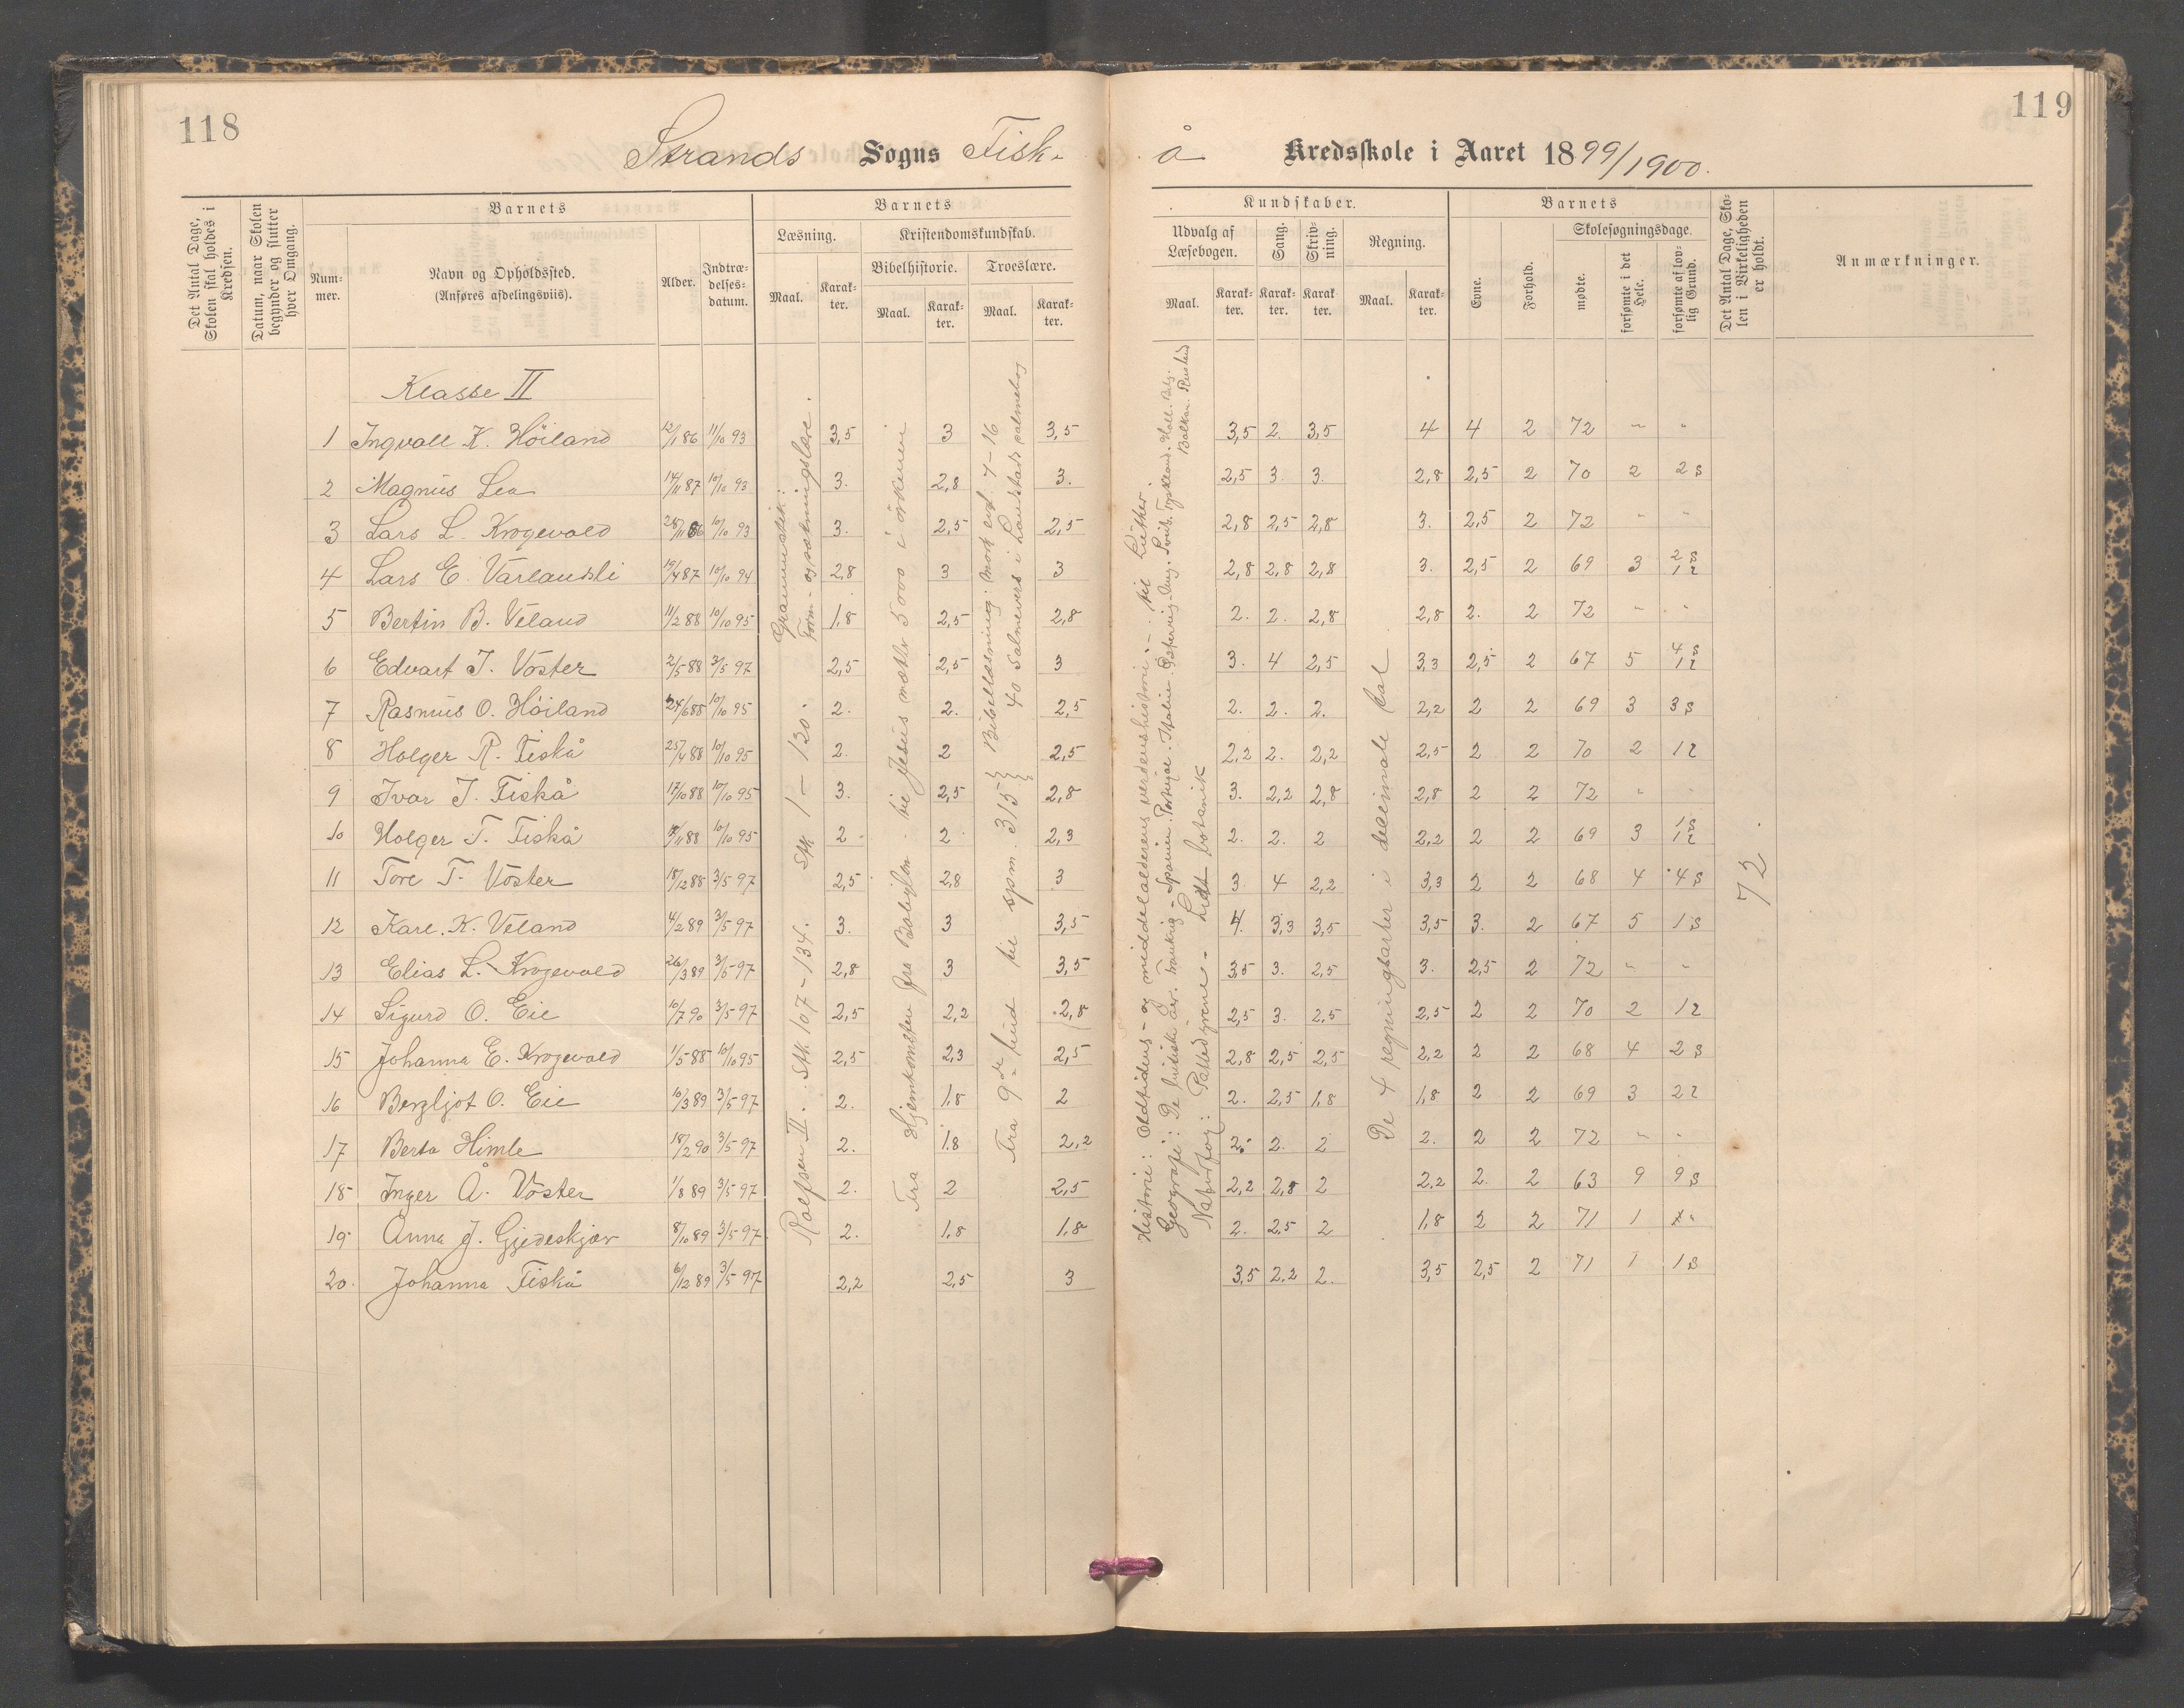 118
119
Strands Sogns Fisk-
å Kredsskole i Aaret 1899/1900.
Det Antal Dage, Skolen skal holdes i Kredsen.
Datum, naar Skolen begynder og slutter hver Omgang.
Barnets
Nummer.
Navn og Opholdssted.
(Anføres afdelingsviis).
Alder.
Indtrædelsesdatum.
Barnets
Læsning.
Maal.
Karakter.
Kristendomskundskab.
Bibelhistorie.
Maal.
Karakter.
Troeslære.
Maal.
Karakter.
Kundskaber.
Udvalg af Læsebogen.
Maal.
Karakter.
Sang.
Karakter.
Skrivning.
Karakter.
Regning.
Maal.
Karakter.
Barnets
Evne.
Forhold.
Skolesøgningsdage.
mødte.
forsømte i det Hele.
forsømte af lovlig Grund.
Det Antal Dage, Skolen i Virkeligheden er holdt.
Anmærkninger.
Klasse II
1 Ingvald K. Höiland 12/1 86 11/10 93 3,5 3 3,5 3,5 2. 3,5 4 4 2 72 " "
2 Magnus Lea 14/11 87 10/10 93 3. 2,8 3. 2,5 3. 3. 2,8 2,5 2 70 2 2 s
3 Lars L. Krogevold 28/11 86 10/10 93 3. 2,5 2,5 2,8 2,5 2,8 3. 2,5 2 72 " "
4 Lars E. Varlandsli 19/4 87 10/10 94 2,8 3 3 2,8 2,8 2,8 3. 2,5 2 69 3 2 s 1 l
5 Bertin B. Veland 11/2 88 10/10 95 1,8 2,5 2,8 2. 2. 2,8 2,8 2. 2 72 " "
6 Edvart J. Vöster 2/5 88 3/5 97 2,5 2,5 3 3. 4 2,5 3,3 2,5 2 67 5 4 s 1 l
7 Rasmus O. Höiland 24/6 88 10/10 95 2. 2. 2,5 2. 2. 2. 2,2 2 2 69 3 3 s
8 Holger R. Fiskå 25/4 88 10/10 95 2. 2 2,5 2,2 2. 2,2 2,5 2 2 70 2 1 l
9 Ivar J. Fiskå 17/10 88 10/10 95 3. 2,5 2,8 3. 2,2 2,8 2,8 2 2 72 " "
10 Holger T. Fiskå 9/11 88 10/10 95 2 2 2,3 2. 2. 2 2,2 2 2 69 3 1 s 1 l
11 Tore T. Vöster 18/12 88 3/5 97 2,5 2,8 3 3. 4 2,2 3,3 2 2 68 4 4 s
12 Karl. K. Veland 4/2 89 3/5 97 3. 3 3,5 4. 3,3 3,5 3,5 3. 2 67 5 1 s
13 Elias L. Krogevold 26/3 89 3/5 97 2,8 3 3,5 3,5 3. 2,5 3. 2,5 2 72 " "
14 Sigurd O. Eie 10/7 90 3/5 97 2,5 2,2 2,8 2,5 3. 2,5 2,5 2 2 70 2 1 l
15 Johanna E. Krogevold 1/5 88 10/10 95 2,5 2,3 2,5 2,8 2,5 2,5 2,2 2 2 68 4 2 s
16 Bergljot O. Eie 10/3 89 3/5 97 2. 1,8 2 2. 2,5 1,8 1,8 2 2 69 3 2 l
17 Berta Himle 18/2 90 3/5 97 2. 1,8 2,2 2. 2. 2 2. 2 2 72 " "
18 Inger Å. Vöster 1/8 89 3/5 97 2. 2 2,5 2,2 2,8 2 2,2 2. 2 63 9 9 s
19 Anna J. Gjedeskjær 8/10 89 3/5 97 2. 1,8 1,8 2. 2,5 2 1,8 2 2 71 1 "
20. Johanna Fiskå 6/12 89 3/5 97 2,2 2,5 3 3,5 2,2 2. 3,5 2,5 2 71 1 1 s
Rolfsen II. Stk 107-134. Stk 1-120.
Grammatik:
Form- og sætningslære.
Fra Hjemkomsten fra Babylon til Jesus mætter 5000 i örkenen
Fra 9de bud til spm. 315
Bibellæsning: Mark evgl. 7-16
40 salmevers i Landstads salmebog
Historie: Oldtidens- og middelalderens verdenshistorie - til Luther.
Geografi: De britiske öer. Frankrig - Spanien. Portugal. Italien. Österrig-Ung. Sveits. Tyskland. Holl. Belg.
Balkan. Rusland
Naturfag: Pattedyrene - Lidt botanik
De 4 regningsarter i decimale tal
72.